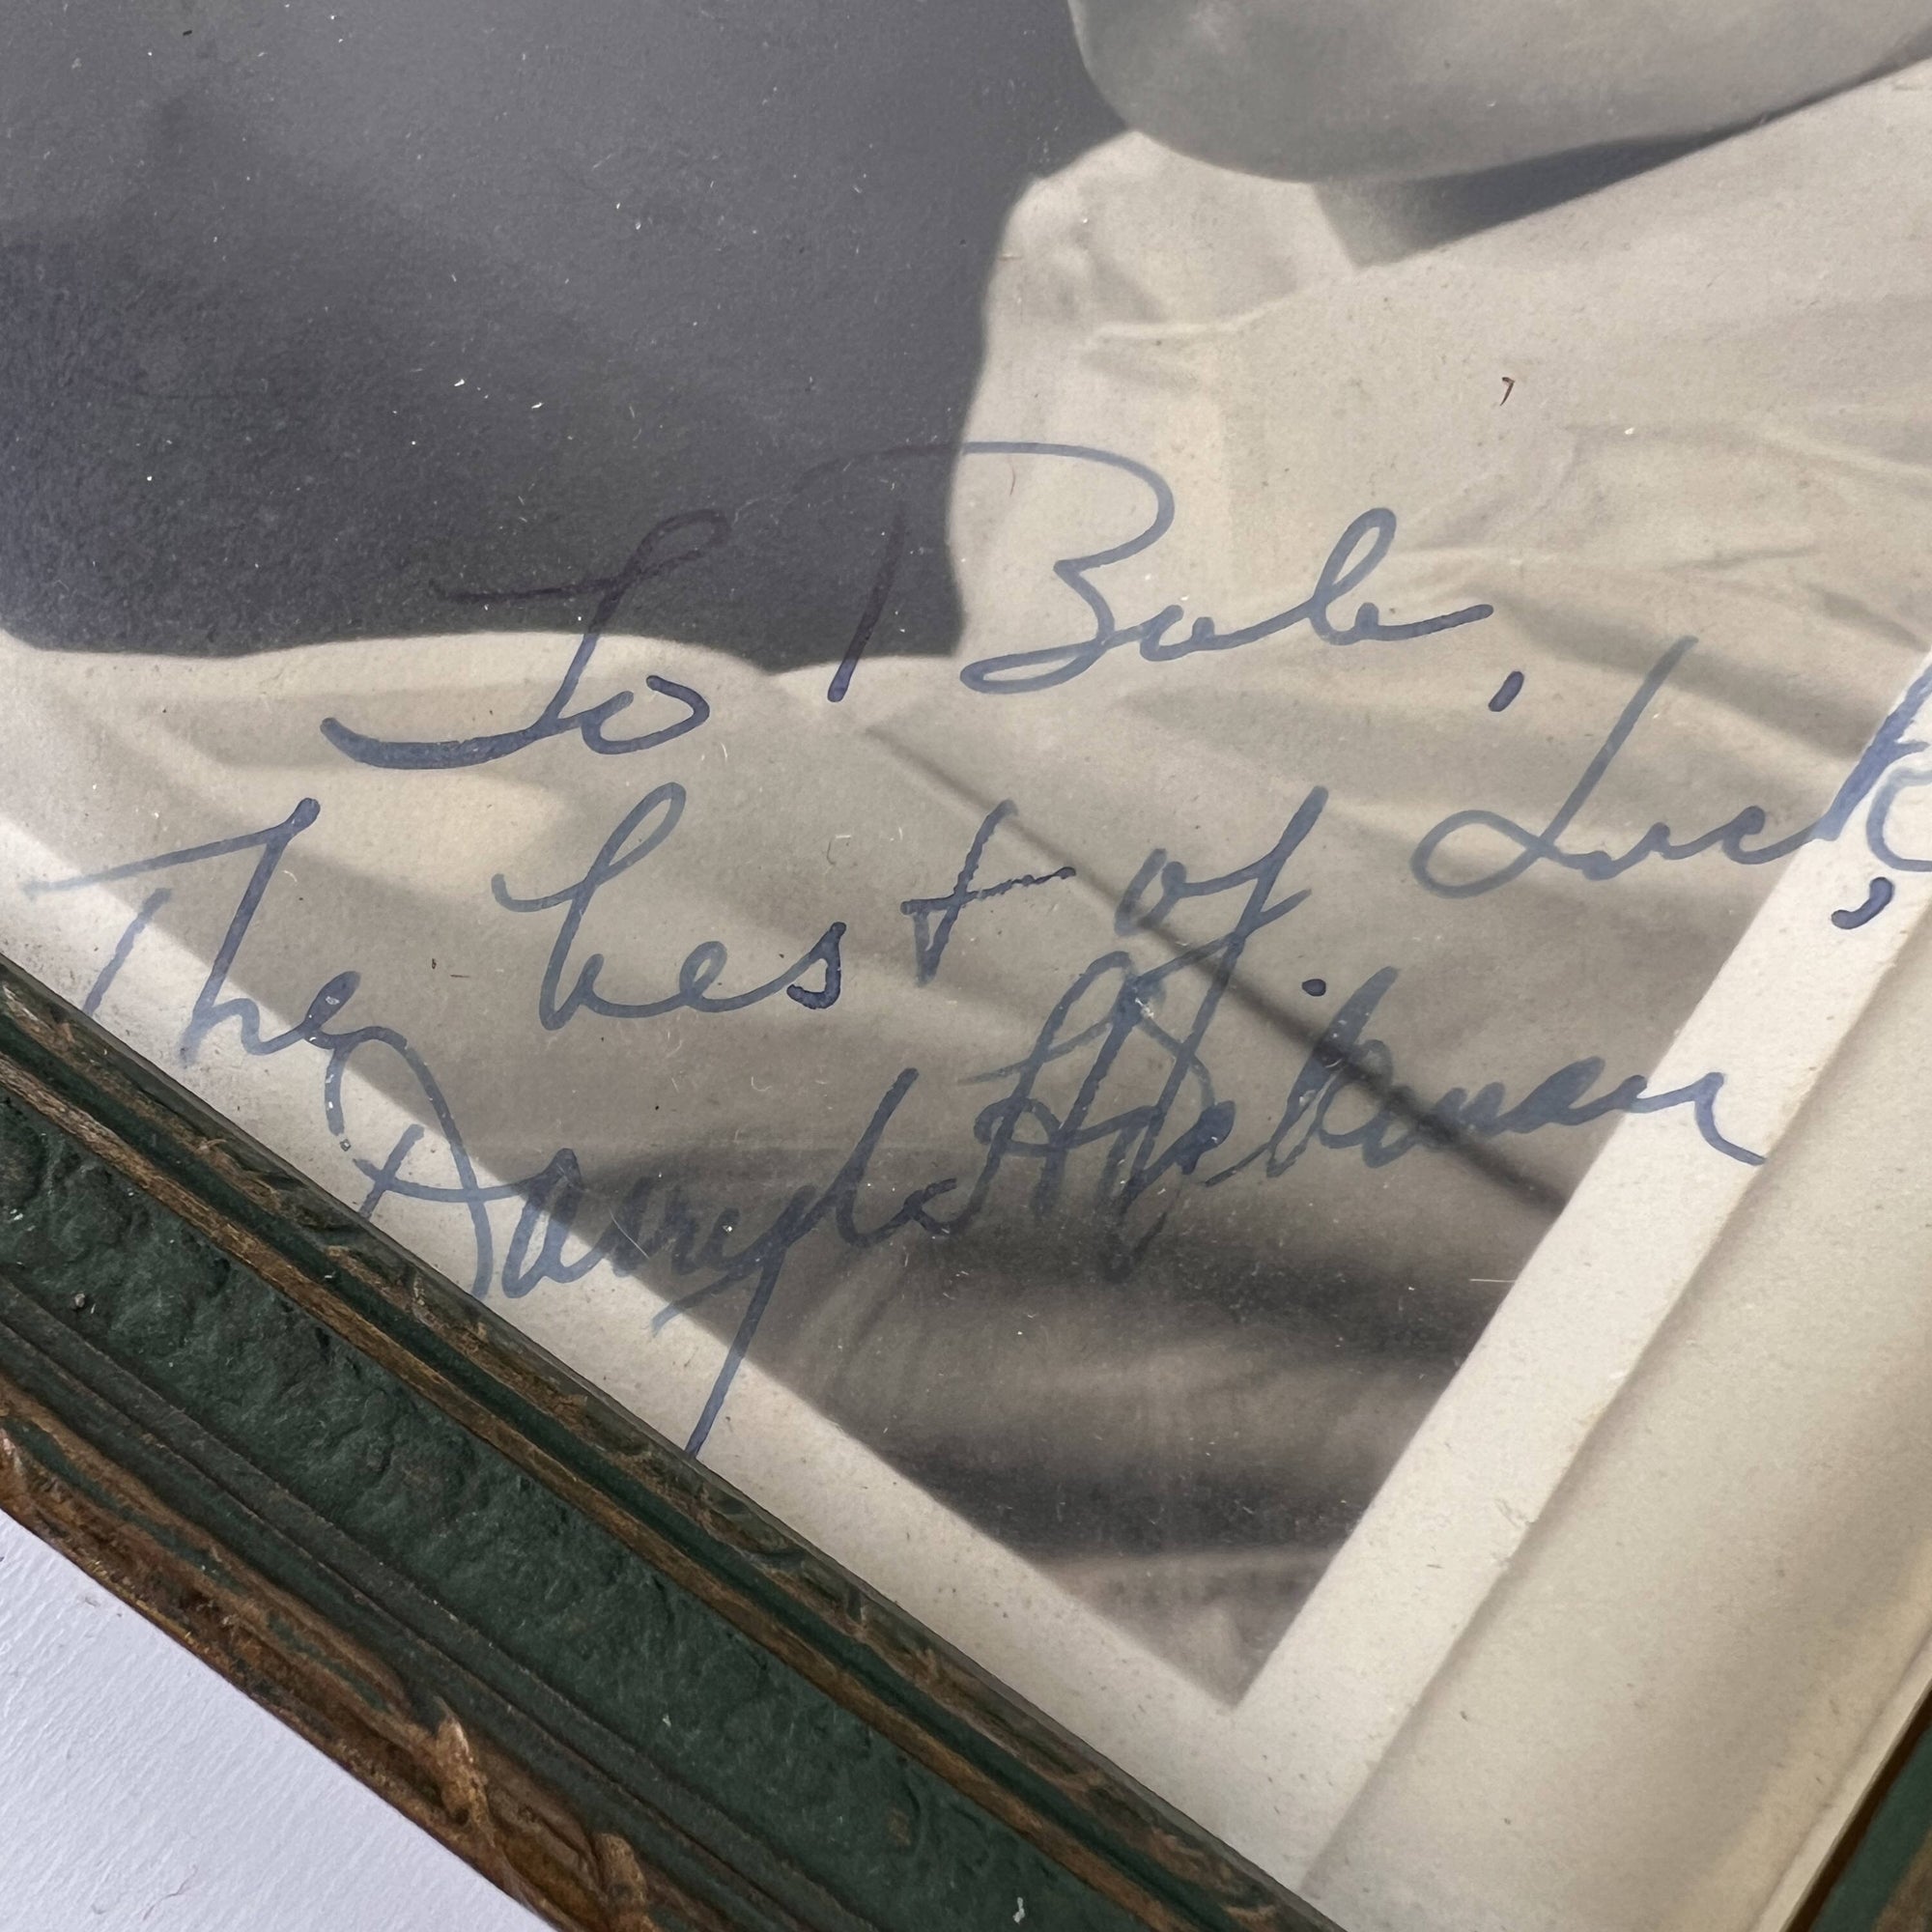 To Bob,
The best of Luck,
Darryl Hickman